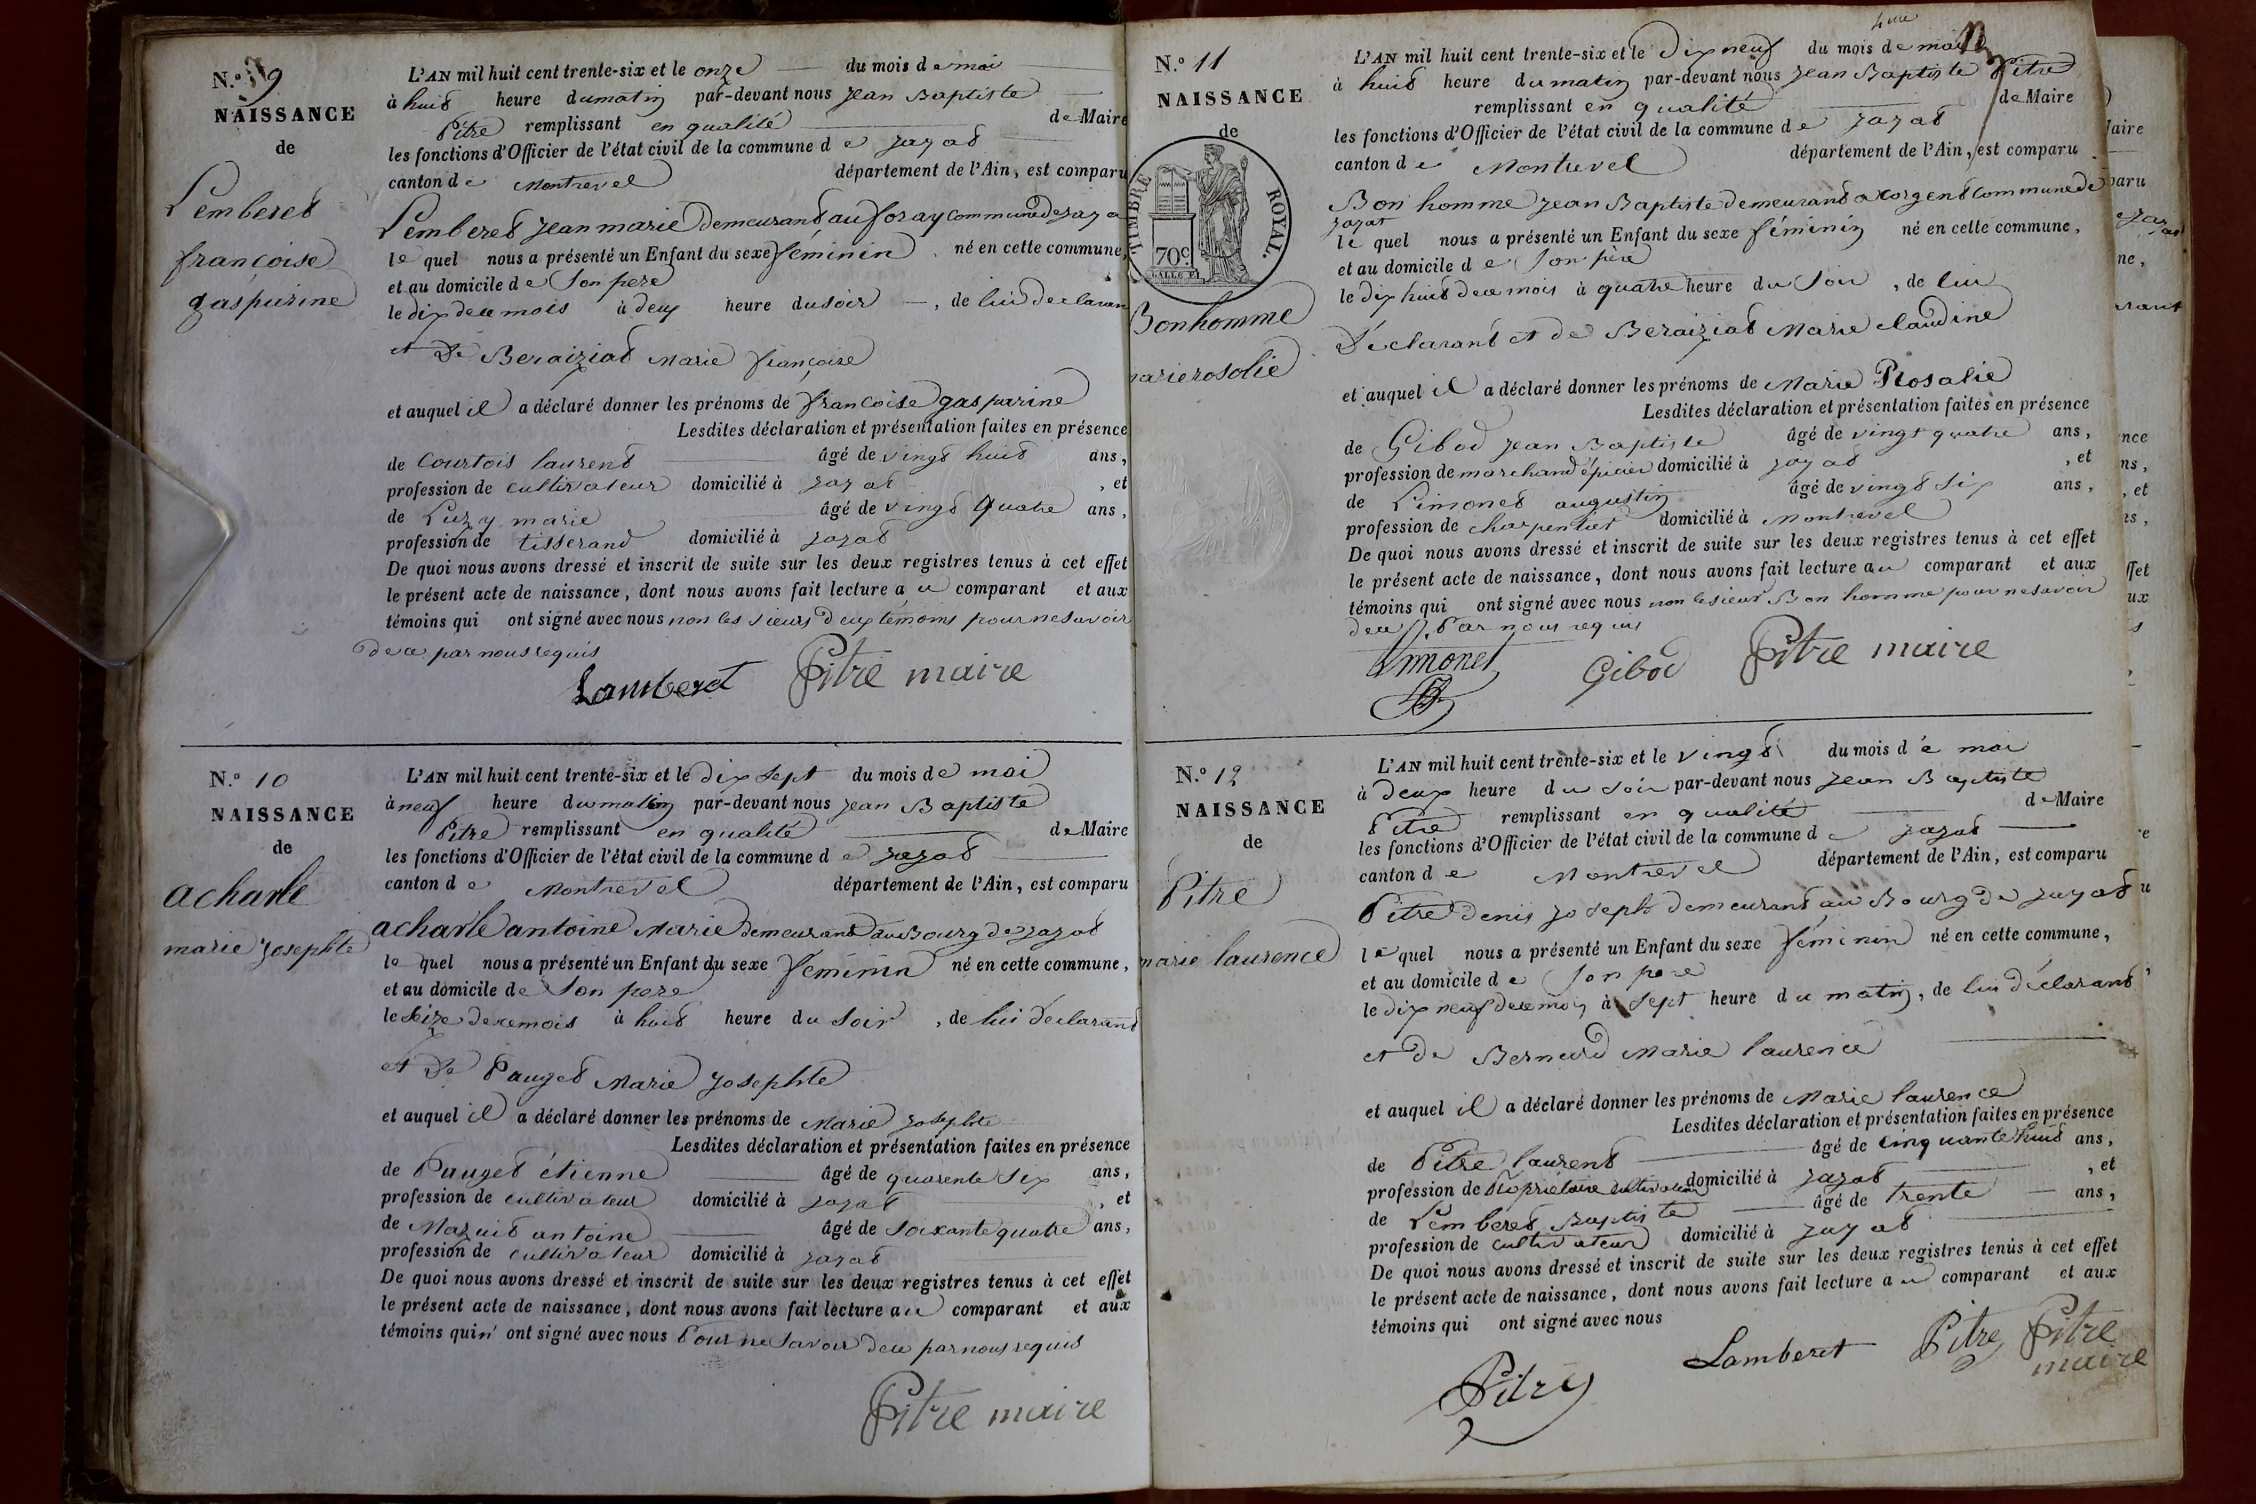 N.º 9
NAISSANCE
de
Lemberet
francoise
gasparine
L'AN mil huit cent trente-six et le onze du mois de mai
à huit heure du matin par-devant nous jean Baptiste
Pitre remplissant en qualité de Maire
les fonctions d'Officier de l'état civil de la commune de jayat
canton de Montrevel département de l'Ain, est comparu
Lemberet jean marie demeurant au foray commune de jaya
le quel nous a présenté un Enfant du sexe féminin né en cette commune,
et au domicile de Son pere
le dix de ce mois à deux heure du soir, de lui declaran
et De Beraiziat Marie françoise
et auquel il a déclaré donner les prénoms de francoise gasparine
Lesdites déclaration et présentation faites en présence
de Courtois laurent âgé de vingt huit ans,
profession de cultivateur domicilié à jayat, et
de Luzy marie âgé de vingt quatre ans,
profession de tisserand domicilié à jayat
De quoi nous avons dressé et inscrit de suite sur les deux registres tenus à cet effet
le présent acte de naissance, dont nous avons fait lecture au comparant et aux
témoins qui ont signé avec nous non les sieurs deux témoins pour ne savoir
de ce par nous requis
Lamberet Pitre maire
N.º 10
NAISSANCE
de
acharle
marie josephte
L'AN mil huit cent trente-six et le dix sept du mois de mai
à neuf heure du matin par-devant nous jean Baptiste
Pitre remplissant en qualité de Maire
les fonctions d'Officier de l'état civil de la commune de jayat
canton de Montrevel département de l'Ain, est comparu
acharle antoine Marie demeurant au Bourg de jayat
le quel nous a présenté un Enfant du sexe féminin né en cette commune,
et au domicile de Son pere
le seize de ce mois à huit heure du Soir, de lui declarant
et De Pauget Marie josephte
et auquel il a déclaré donner les prénoms de Marie josephte
Lesdites déclaration et présentation faites en présence
de Pauget étienne âgé de quarente Six ans,
profession de cultivateur domicilié à jayat, et
de Mazuit antoine âgé de soixante quatre ans,
profession de cultivateur domicilié à jayat
De quoi nous avons dressé et inscrit de suite sur les deux registres tenus à cet effet
le présent acte de naissance, dont nous avons fait lecture au comparant et aux
témoins qui n' ont signé avec nous Pour ne Savoir de ce par nous requis
Pitre maire
4me
N.º 11
NAISSANCE
de
TIMBRE ROYAL.
70c.
Bonhomme
marie rosolie
L'AN mil huit cent trente-six et le Dix neuf du mois de mai
à huit heure du matin par-devant nous jean Baptiste Pitre
remplissant en qualité de Maire
les fonctions d'Officier de l'état civil de la commune de jayat
canton de Montrevel département de l'Ain, est comparu
Bon homme jean Baptiste demeurant a Corgent Commune de
jayat
le quel nous a présenté un Enfant du sexe féminin né en cette commune,
et au domicile de Son père
le dix huit de ce mois à quatre heure du Soir, de lui
Déclarant et de Beraiziat Marie claudine
et auquel il a déclaré donner les prénoms de Marie Rosalie
Lesdites déclaration et présentation faites en présence
de Gibod jean Baptiste âgé de vingt quatre ans,
profession de marchand épicier domicilié à jayat, et
de Limonet augustin âgé de vingt Six ans,
profession de charpentier domicilié à Montrevel
De quoi nous avons dressé et inscrit de suite sur les deux registres tenus à cet effet
le présent acte de naissance, dont nous avons fait lecture au comparant et aux
témoins qui ont signé avec nous non le sieur Bon homme pour ne savoir
de ce Par nous requis
Limonet Gibod Pitre maire
N.º 12
NAISSANCE
de
Pitre
marie laurence
L'AN mil huit cent trente-six et le vingt du mois de mai
à Deux heure du soir par-devant nous jean Baptiste
Pitre remplissant en qualité de Maire
les fonctions d'Officier de l'état civil de la commune de jayat
canton de Montrevel département de l'Ain, est comparu
Pitre denis joseph demeurant au Bourg de jayat
le quel nous a présenté un Enfant du sexe féminin né en cette commune,
et au domicile de Son pere
le dix neuf de ce mois à Sept heure du matin, de lui déclarant
et de Bernard Marie laurence
et auquel il a déclaré donner les prénoms de Marie laurence
Lesdites déclaration et présentation faites en présence
de Pitre laurent âgé de Cinquante huit ans,
profession de Proprietaire Cultivateur domicilié à jayat, et
de Lemberet Baptiste âgé de trente ans,
profession de Cultivateur domicilié à jayat
De quoi nous avons dressé et inscrit de suite sur les deux registres tenus à cet effet
le présent acte de naissance, dont nous avons fait lecture au comparant et aux
témoins qui ont signé avec nous
Lamberet Pitre Pitre
maire
Pitre